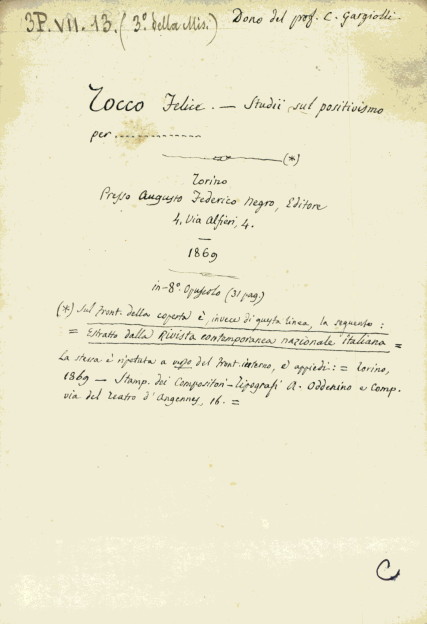 3P. VII. 13. (3º della Mis.) Dono del prof. C. Gargiolli.
Tocco Felice. — Studii sul positivismo
per ..............
(*)
Torino
Presso Augusto Federico Negro, Editore
4, Via Alfieri, 4.
—
1869
in-8º. Opuscolo (31 pag.)
(*) Sul front. della coperta è, invece di questa linea, la seguente :
= Estratto dalla Rivista contemporanea nazionale italiana =
La stessa è ripetuta a verso del front. interno, e appiedi: = Torino,
1869 — Stamp. dei Compositori-Tipografi A. Oddenino e Comp.
via del Teatro d'Angennes, 16. =
C